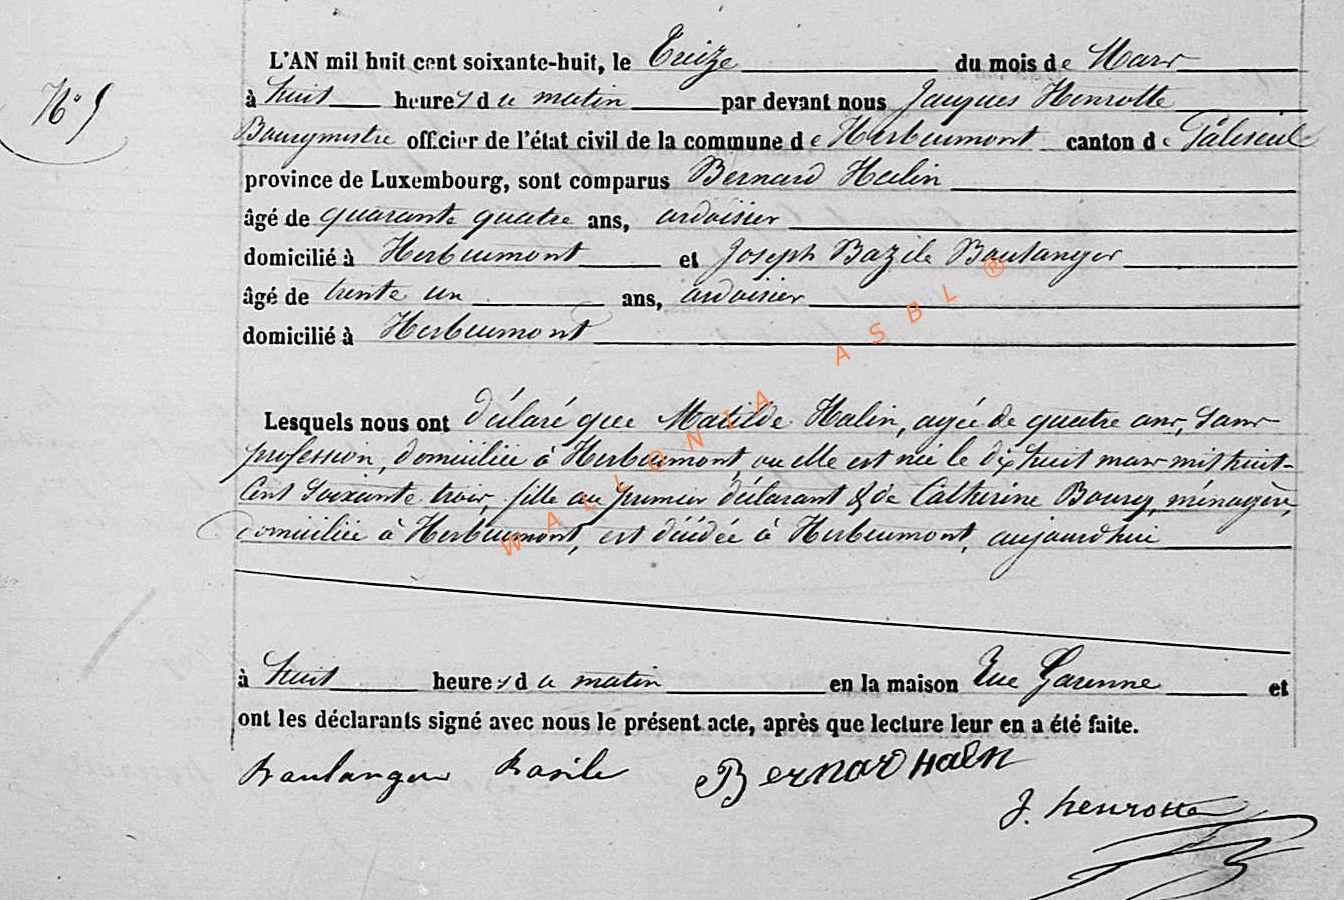 N° 5
L'AN mil huit cent soixante-huit, le Treize du mois de Mars
à huit heures du matin par devant nous Jacques Henrotte
Bourgmestre officier de l'état civil de la commune de Herbeumont canton de Paliseul
province de Luxembourg, sont comparus Bernard Halin
âgé de quarante quatre ans, ardoisier
domicilié à Herbeumont et Joseph Bazile Boulanger
âgé de trente un ans, ardoisier
domicilié à Herbeumont
Lesquels nous ont déclaré que Matilde Halin, agée de quatre ans, sans
profession, domiciliée à Herbeumont, ou elle est née le dix huit mars mil huit-
Cent Soixante trois, fille au premier déclarant & de Catherine Bourg, ménagère,
domiciliée à Herbeumont, est décédée à Herbeumont, aujourd'hui
à huit heures du matin en la maison Rue Garenne et
ont les déclarants signé avec nous le présent acte, après que lecture leur en a été faite.
Boulanger Basile Bernard Halin
J. henrotte
WALLONIA ASBL ®